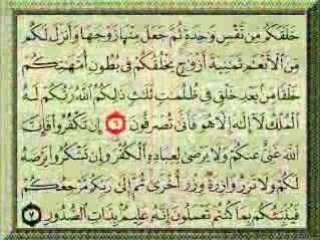 خَلَقَكُم مِّن نَّفْسٍ وَٰحِدَةٍ ثُمَّ جَعَلَ مِنْهَا زَوْجَهَا وَأَنزَلَ لَكُم
مِّنَ ٱلْأَنْعَٰمِ ثَمَٰنِيَةَ أَزْوَٰجٍ يَخْلُقُكُمْ فِى بُطُونِ أُمَّهَٰتِكُمْ
خَلْقًا مِّنۢ بَعْدِ خَلْقٍ فِى ظُلُمَٰتٍ ثَلَٰثٍ ذَٰلِكُمُ ٱللَّهُ رَبُّكُمْ لَهُ
ٱلْمُلْكُ لَآ إِلَٰهَ إِلَّا هُوَ فَأَنَّىٰ تُصْرَفُونَ ٦ إِن تَكْفُرُوا۟ فَإِنَّ
ٱللَّهَ غَنِىٌّ عَنكُمْ وَلَا يَرْضَىٰ لِعِبَادِهِ ٱلْكُفْرَ وَإِن تَشْكُرُوا۟ يَرْضَهُ
لَكُمْ وَلَا تَزِرُ وَازِرَةٌ وِزْرَ أُخْرَىٰ ثُمَّ إِلَىٰ رَبِّكُم مَّرْجِعُكُمْ
فَيُنَبِّئُكُم بِمَا كُنتُمْ تَعْمَلُونَ إِنَّهُۥ عَلِيمٌۢ بِذَاتِ ٱلصُّدُورِ ٧